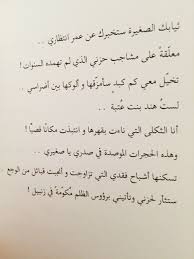 ثيابك الصغيرة ستخبرك عن عمر انتظاري . .
معلقةً على مشاجب حزني الذي لم تهمده السنوات !
تخيّل معي كم كبد سأمزقها و ألوكها بين أضراسي .
لستُ هند بنت عُتبة . .
أنا الثكلى التي نامت بقهرها و انتبذت مكاناً قصيّاً !
وهذه الحجرات الموصدة في صدري يا صغيري . .
تسكنها أشباح فقدي التي تزاوجت و أنجبت قبائل من الوجع
ستثأر لحزني وتأتيني برؤوس الظلم مُكوّمةً في زنبيل !